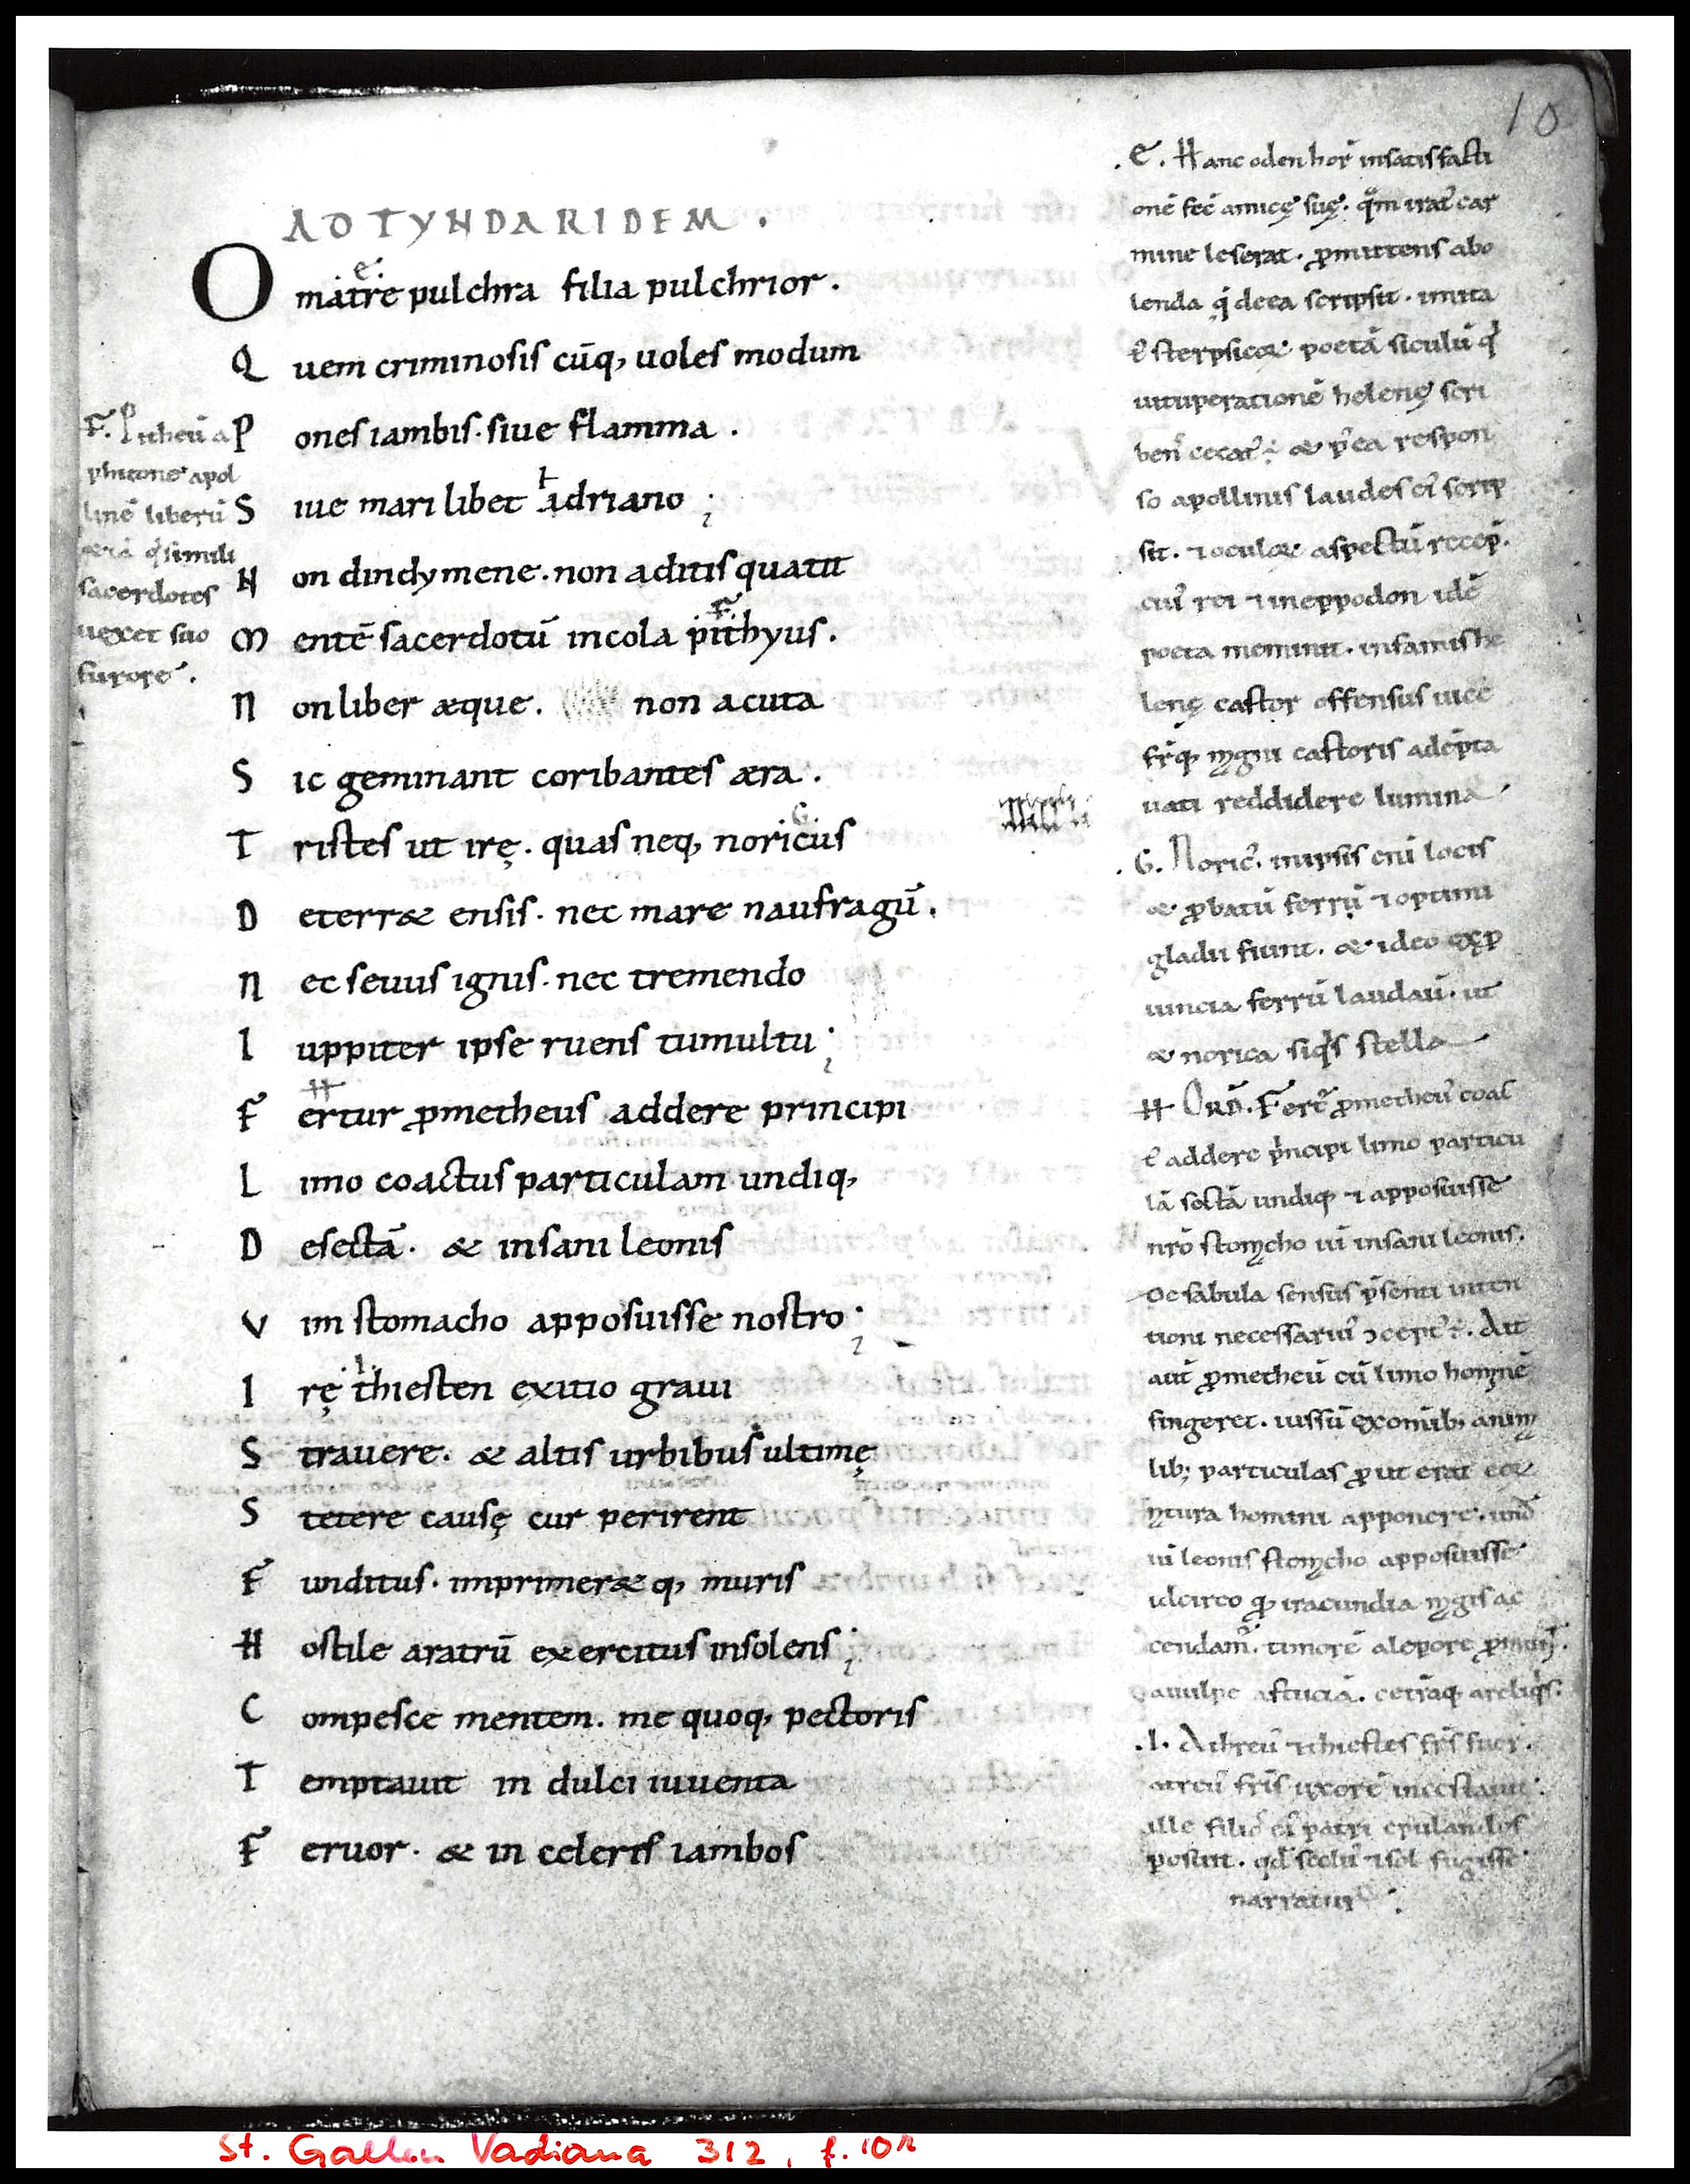 10
AD TYNDARIDEM .
O matre pulchra filia pulchrior .
Quem criminosis cūq, uoles modum
Pones iambis · siue flamma .
Siue mari libet adriano ;
Non dindymene . non aditis quatit
Mentē sacerdotū incola pithyus .
Non liber æque . non acuta
Sic geminant coribantes æra .
Tristes ut irę . quas neq, noricus
Deterr& ensis . nec mare naufragū .
Nec seuus ignis . nec tremendo
Iuppiter ipse ruens tumultu ;
Fertur ꝓmetheus addere principi
Limo coactus particulam undiq,
Desectā . & insani leonis
Vim stomacho apposuisse nostro ;
Irę thiesten exitio graui
Strauere . & altis urbibus ultimę
Stetere causę cur perirent
Funditus . imprimer& q, muris
Hostile aratrū exercitus insolens ;
Compesce mentem . me quoq, pectoris
Temptauit in dulci iuuenta
Feruor . & in celeres iambos
F. Pitheū a
phitone apol
linē liberū
sacerdotes
uexet suo
furore .
.E. Hanc oden hor̄ in satisfacti
onē fec̄ amicę suę . qm̄ irat᾽ car
mine leserat . ꝓmittens abo
lenda q̇ d eea scripsit . imita
poetā siculū
uituperationē helenę scri
& p̄ea respon
so apollinis laudes ei᾽ scrip
sit . ⁊ oculoꝝ aspectū recep̄ .
cui᾽ rei ⁊ in eppodon idē
poeta meminit . infamis he
lenę castor offensus uice
castoris adēpta
uati reddidere lumina
.G. Noric᾽ . in ipsis eni locis
& ꝓbatū ferrū ⁊ optimi
gladii fiunt . & ideo
ferrū laudaū . ut
& norica siq̇s stella
H Ord̄ . Fert᾽ ꝓmetheu᾽ coac
t᾽ addere p̄ncipi limo particu
lā sectā undiq, ⁊ apposuisse
nr̄o stomacho uī insani leonis .
fabula sensus p̄senti inten
tioni necessariu᾽
aut̄ ꝓmetheū cū limo hominē
fingeret . iussū
lib; particulas ꝓut erat eoꝝ
natura homini apponere . und̄
uī leonis stomacho apposuisse
idcirco iracundia magis ac
cendam᾽ . timorē a lepore
a uulpe astuciā .
.I. Athreu᾽ ⁊ thiestes fr̄s fuer̄ .
atreu᾽ fr̄is uxorē incestauit .
ille filio᾽ ei᾽ patri epulandos
posuit . qd̄ scelu᾽ ⁊ sol fugisse
narratur :
St. Gallen Vadiana 312, f. 10r